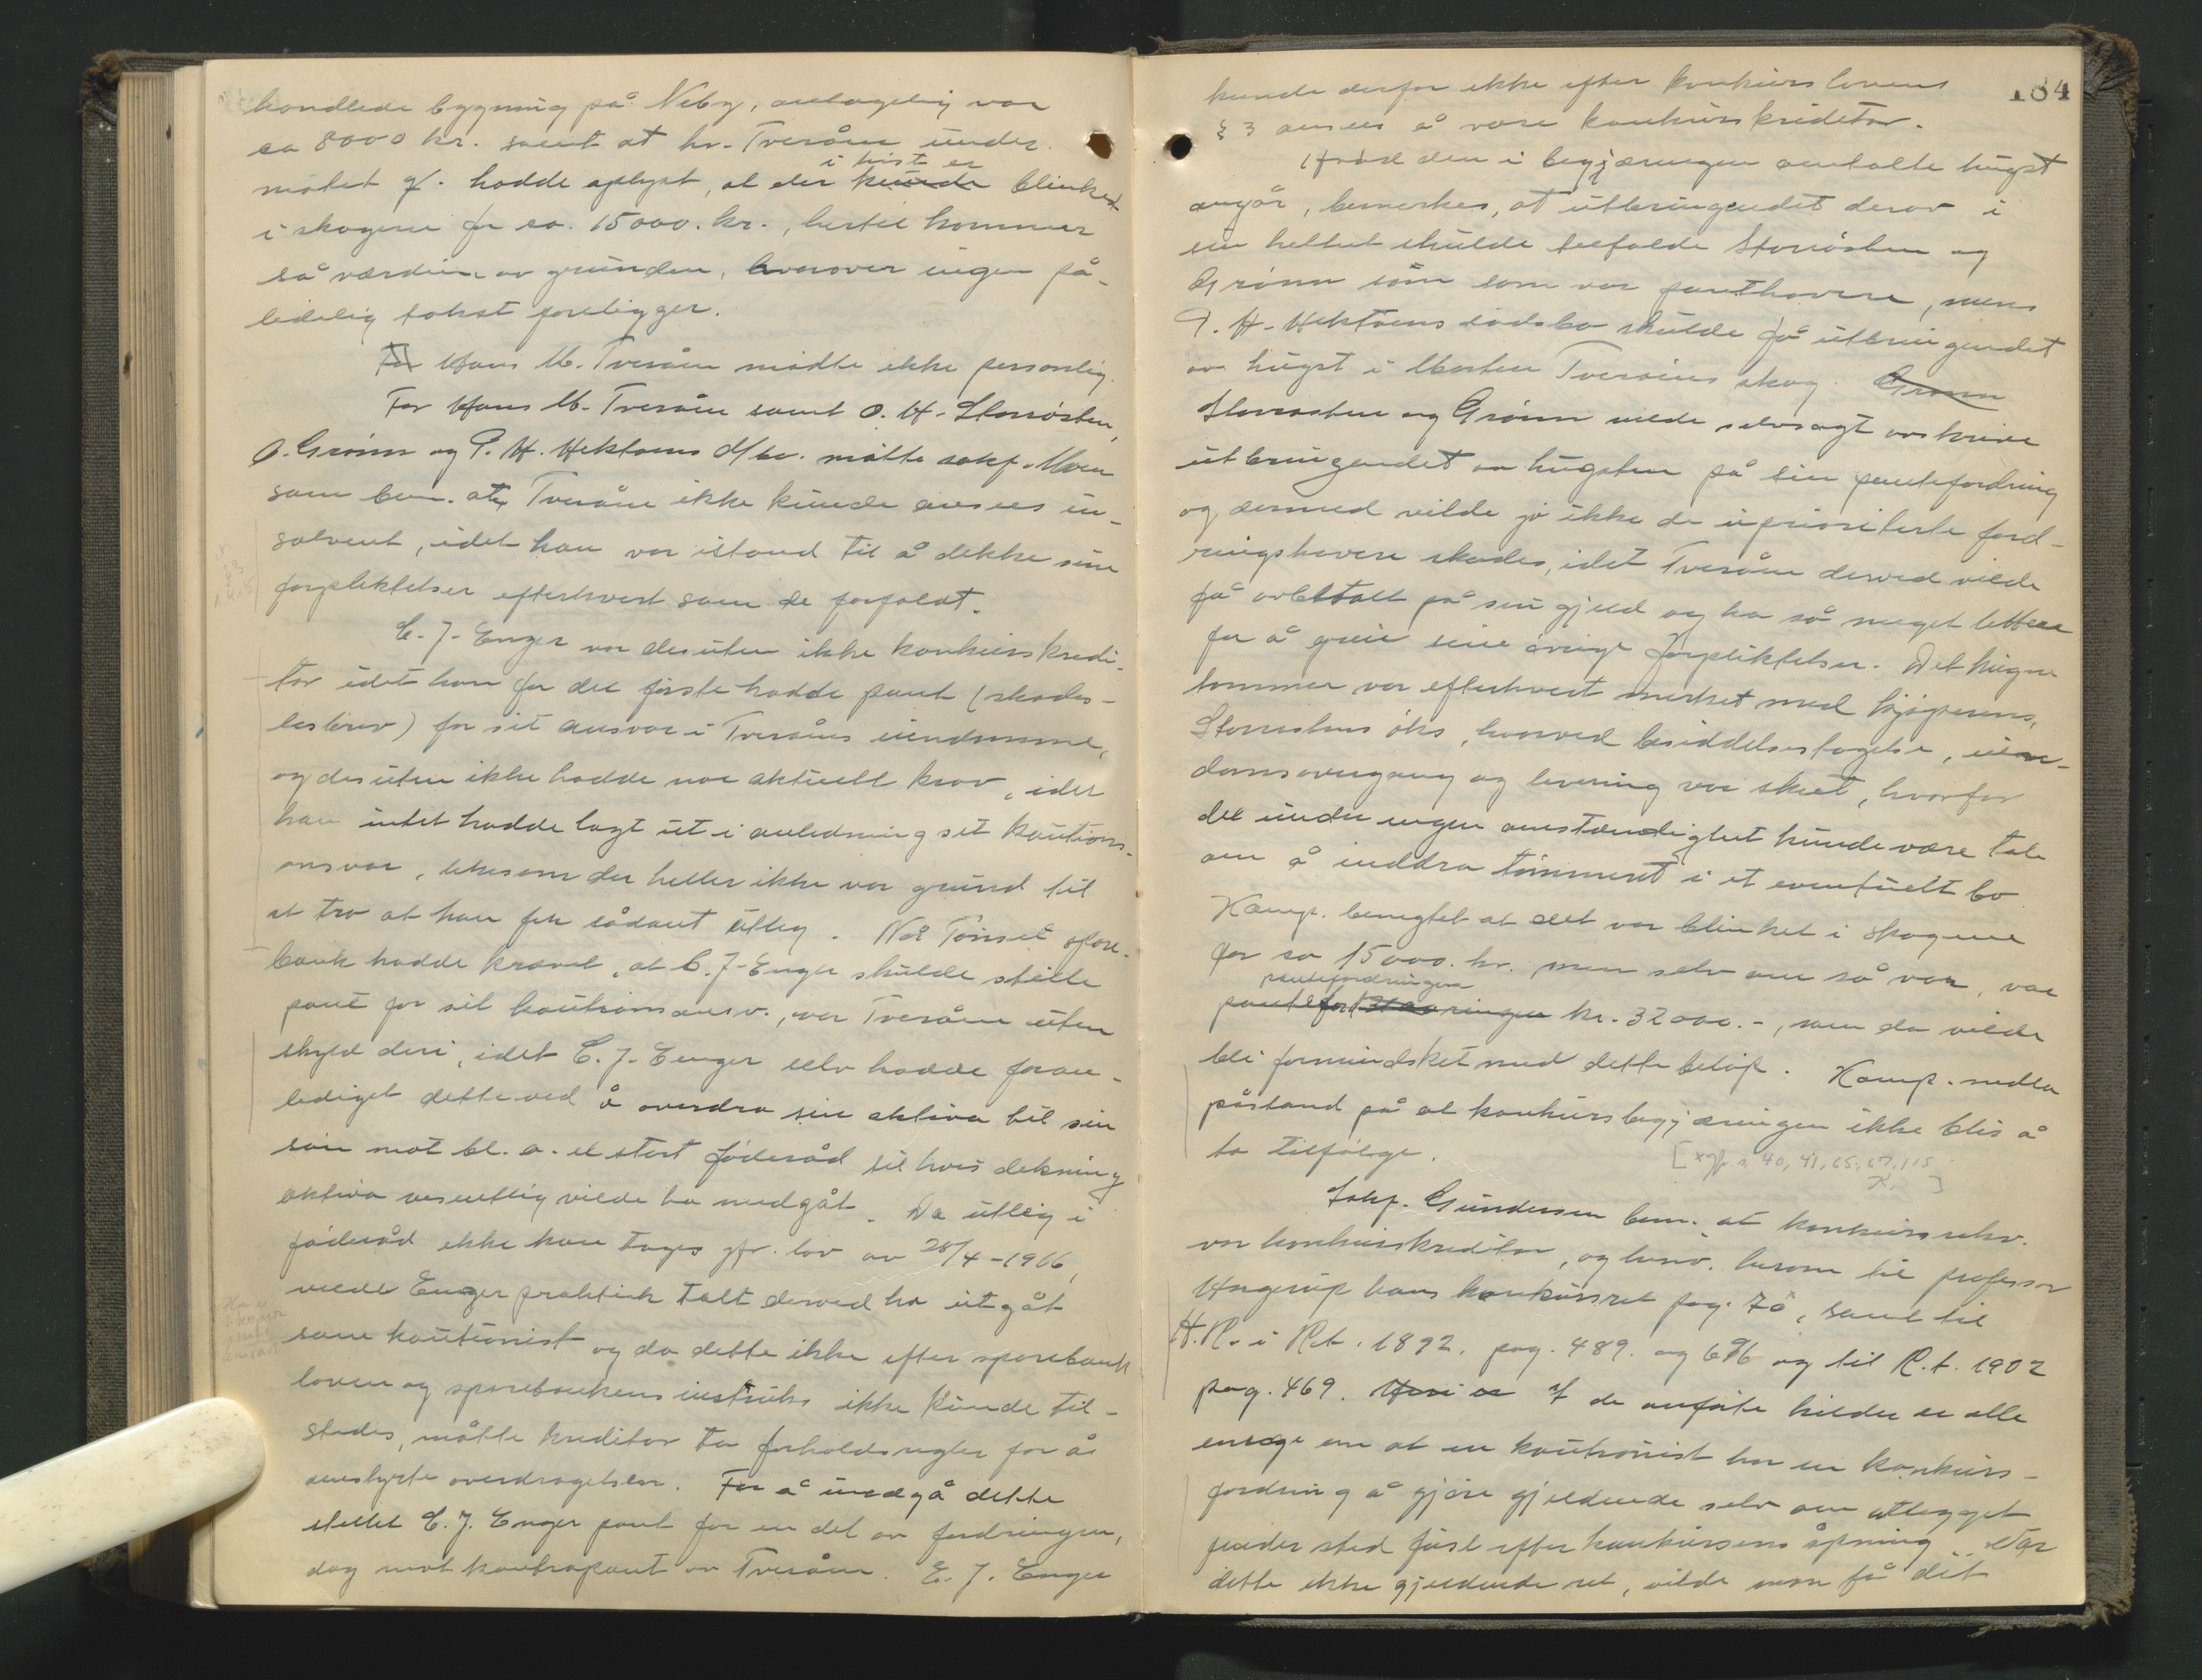 handlede bygning på Neby, antagelig var
ca 8000 kr. samt at hr. Tveråen under
møtet gf. hadde oplyst, at der i höst er kunde blinket
i skogene for ca. 15000. kr., hertil kommer
så værdien av grunden, hvorover ingen på-
lidelig takst foreligger.
For Hans M. Tveråen mödte ikke personlig.
For Hans M. Tveråen samt O. H. Storrösten,
O. Grönn og P. H. Hektoens d/bo. mötte sakf. Moen
som bem. at Tveråen ikke kunde ansees in-
solvent, idet han var istand til å dekke sine
forpliktelser efterhvert som de forfaldt.
E. J. Enger var desuten ikke konkurskredi-
tor idet han for det første hadde pant (skades-
lesbrev) for sit ansvar i Tveråens eiendomme,
og desuten ikke hadde noe aktuelt krav, idet
han intet hadde lagt ut i anledning sit kautions-
ansvar, likesom der heller ikke var grund til
at tro at han fik sådant utlæg. Når Tönset spare-
bank hadde krævet, at E. J. Enger skulde stille
pant for sit kautionsansv., var Tveråen uten
skyld deri, idet E. J. Enger selv hadde foran-
lediget dette ved å overdra sine aktiva til sin
sön mot bl. a. et stort föderåd til hvis dekning
aktiva vesentlig vilde ha medgåt. Da utlæg i
föderåd ikke kan tages jfr. lov av 28/4-1916,
vilde Enger praktisk talt derved ha utgåt
som kautionist og da dette ikke efter sparebank
loven og sparebankens instruks ikke kunde til-
stedes, måtte kreditor ta forholdsregler for å
omstyrte overdragelsen. For å undgå dette
stillet E. J. Enger pant for en del av fordringen,
dog mot kontrapant av Tveråen. E. J. Enger
184
kunde derfor ikke efter konkurslovens
§ 3 ansees å være konkurskreditor.
Hvad den i begjæringen omtalte hugst
angår, bemerkes, at utbringendet derav i
sin helhet skulde tilfalde Storrösten og
Grönn som var panthavere, mens
P. H. Hektoens dödsbo skulde få utbringendet
av hugst i Morten Tveråens skog. Grönn
Storrösten og Grönn vilde selvsagt avskrive
utbringendet av hugsten på sin pantefordring
og dermed vilde jo ikke de uprioriterte ford-
ringshavere skades, idet Tveråen derved vilde
få avbetalt på sin gjeld og ha så meget lettere
for å greie sine övrige forpliktelser. Det hugne
tömmer var efterhvert merket med kjöperens,
Storröstens öks, hvorved besiddelsestagelse, eien-
domsovergang og levering var skeet, hvorfor
det under ingen omstændighet kunde være tale
om å inddra tömmeret i et eventuelt bo
Komp. benegtet at det var blinket i skogene
for ca 15000. kr. men selv om så var, var
pantefordringen
kr. 32000.-, som da vilde
bli formindsket med dette belöp. Komp. nedla
påstand på at konkursbegjæringen ikke blir å
ta tilfölge.
[* jfr s. 40, 41, 65, 67, 115 ]
Sakf. Gundersen bem. at konkursrekv.
var konkurskreditor, og henv. herom til professor
Hagerup hans konkursret pag. 70, samt til
H.R. i Rt. 1892. pag. 489. og 696 og til R.t. 1902
pag. 469. Af de anförte kilder er alle
enige om at en kautionist har en konkurs-
fordring å gjöre gjeldende selv om utlegget
finder sted först efter konkursens åpning. Var
dette ikke gjeldende ret, vilde man få det